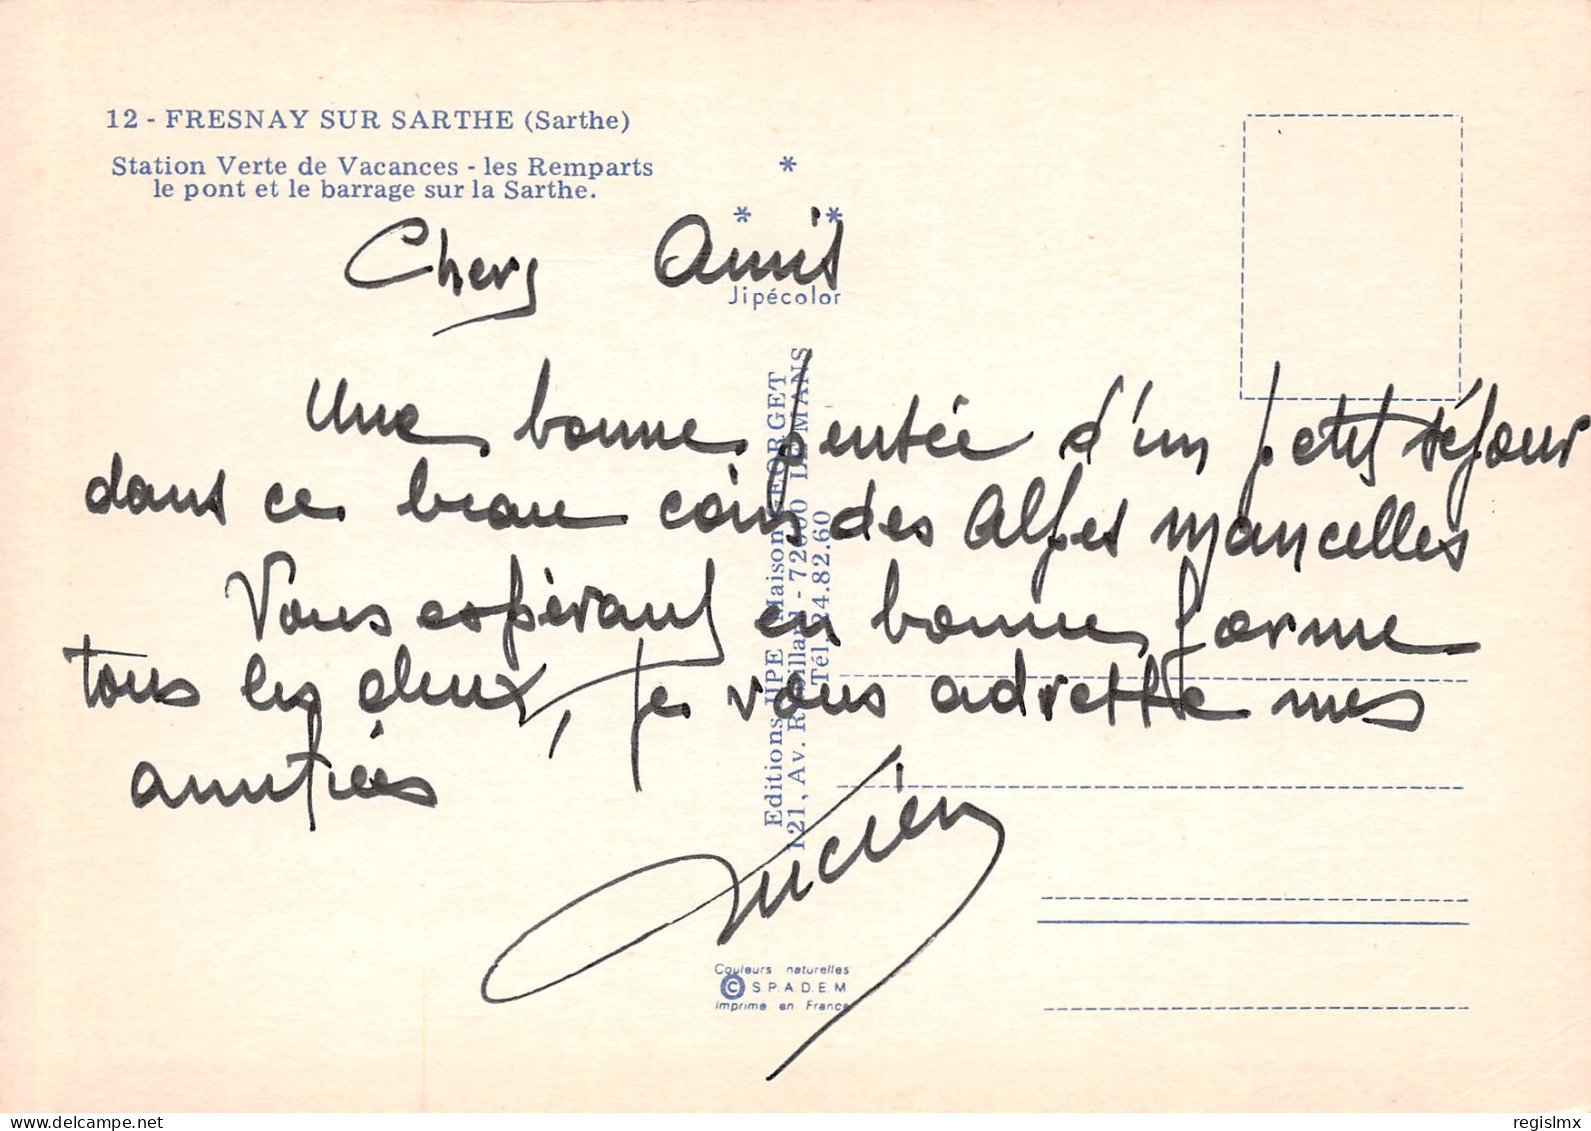 12 - FRESNAY SUR SARTHE (Sarthe)
Station Verte de Vacances - les Remparts
le pont et le barrage sur la Sarthe.
* * *
Chers Amis
Jipécolor
Une bonne pensée d'un petit séjour
dans ce beau coin des Alpes mancelles
Vous espérant en bonne forme
tous les deux, je vous adresse mes
amitiés
Lucien
Editions JIPE Maison GEORGET
121, Av. Rubillard - 72000 LE MANS
Tél. 24.82.60
Couleurs naturelles
© S.P.A.D.E.M.
Imprimé en France
delcampe.net
regislmx